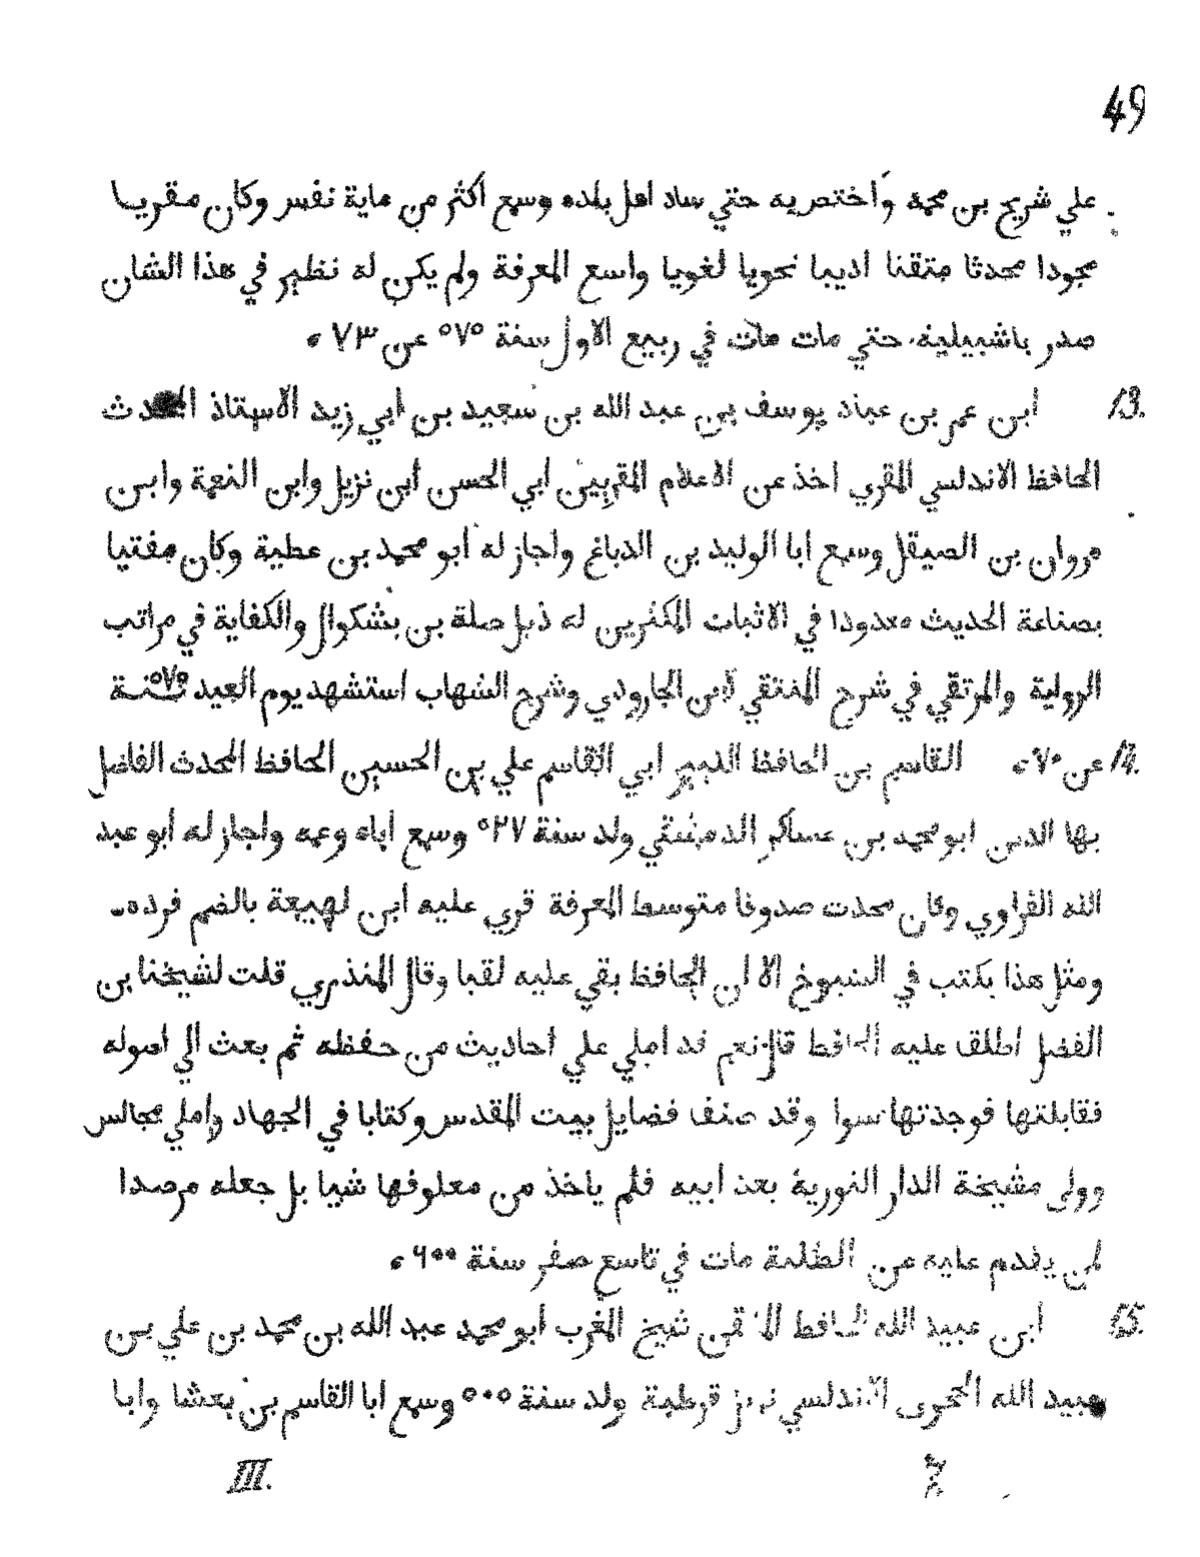 49
علي شريح بن محمد واختص به حتي ساد اهل بلده وسمع اكثر من ماية نفس وكان مقريا
مجودا محدثا متقنا اديبا نحويا لغويا واسع المعرفة ولم يكن له نظير في هذا الشان
صدر باشبيلية حتي مات مات في ربيع الاول سنة ٥٧٥ عن ٧٣ ه
13. ابن عمر بن عياد يوسف بن عبد الله بن سعيد بن ابي زيد الاستاذ المحدث
الحافظ الاندلسي المقري اخذ عن الاعلام المقريين ابي الحسن ابن نزيل وابن النعمة وابن
مروان بن الصيقل وسمع ابا الوليد بن الدباغ واجاز له ابو محمد بن عطية وكان مفتيا
بصناعة الحديث معدودا في الاثبات المكثرين له ذيل صلة بن بشكوال والكفاية في مراتب
الرواية والمرتقي في شرح المنتقي لابن الجارودي وشرح الشهاب استشهد يوم العيد سنة ٥٧٥
14. عن ٧٠ ه القاسم بن الحافظ الكبير ابي القاسم علي بن الحسين الحافظ المحدث الفاضل
بها الدين ابو محمد بن عساكر الدمشقي ولد سنة ٥٢٧ وسمع اباه وعمه واجاز له ابو عبد
الله الفراوي وكان محدث صدوقا متوسط المعرفة قري عليه ابن لهيعة بالضم فرده
ومثل هذا يكتب في الشيوخ الا ان الحافظ بقي عليه لقبا وقال المنذري قلت لشيخنا بن
الفضل اطلق عليه الحافظ قال نعم قد املي علي احاديث من حفظه ثم بعث الي اصوله
فقابلتها فوجدتها سوا وقد صنف فضايل بيت المقدس وكتابا في الجهاد واملي مجالس
وولي مشيخة الدار النورية بعد ابيه فلم ياخذ من معلوفها شيا بل جعله مرصدا
لمن يقدم عليه من الطلبة مات في تاسع صفر سنة ٦٠٠ ه
15. ابن عبيد الله الحافظ المتقن شيخ المغرب ابو محمد عبد الله بن محمد بن علي بن
عبيد الله الحجري الاندلسي نزيل قرطبة ولد سنة ٥٠٥ وسمع ابا القاسم بن بعشا وابا
III. 7